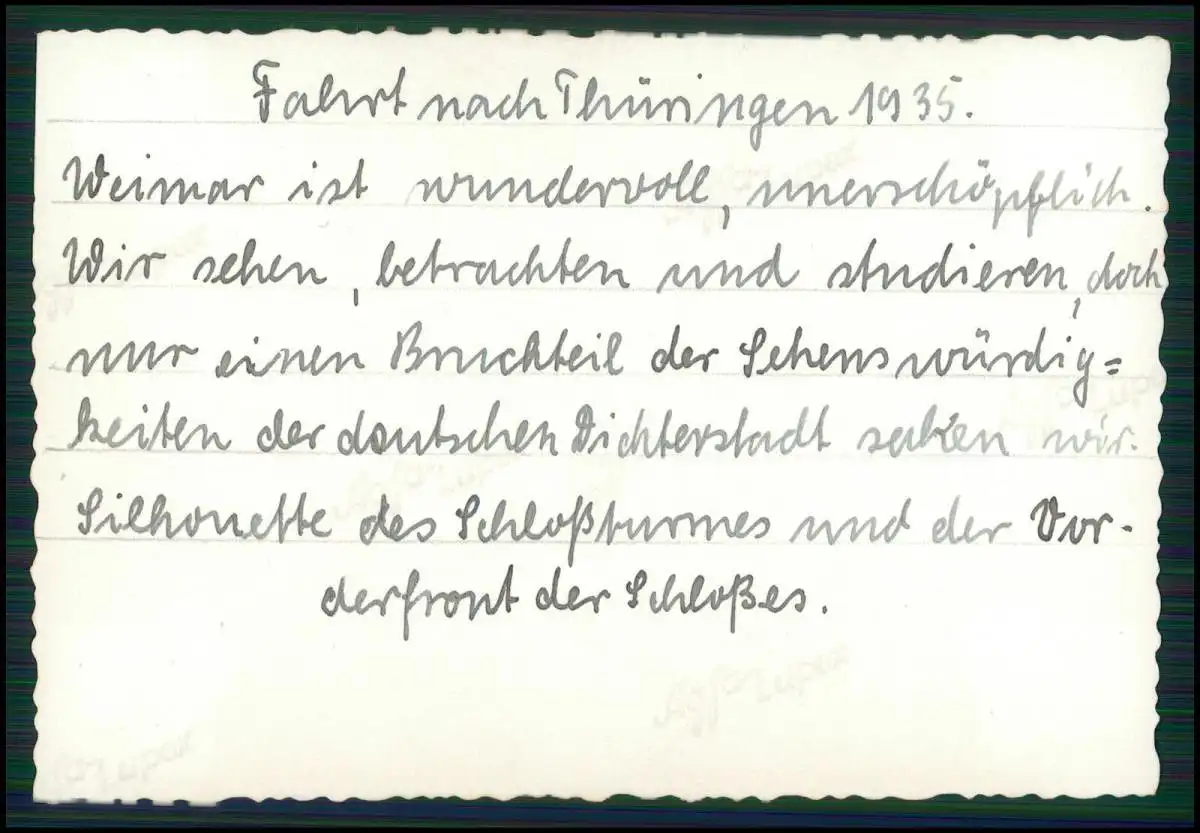 Fahrt nach Thüringen 1935.
Weimar ist wundervoll, unerschöpflich.
Wir sehen, betrachten und studieren, doch
nur einen Bruchteil der Sehenswürdig=
keiten der deutschen Dichterstadt sahen wir.
Silhouette des Schloßturmes und der Vor-
derfront der Schloßes.
Agfa Lupex